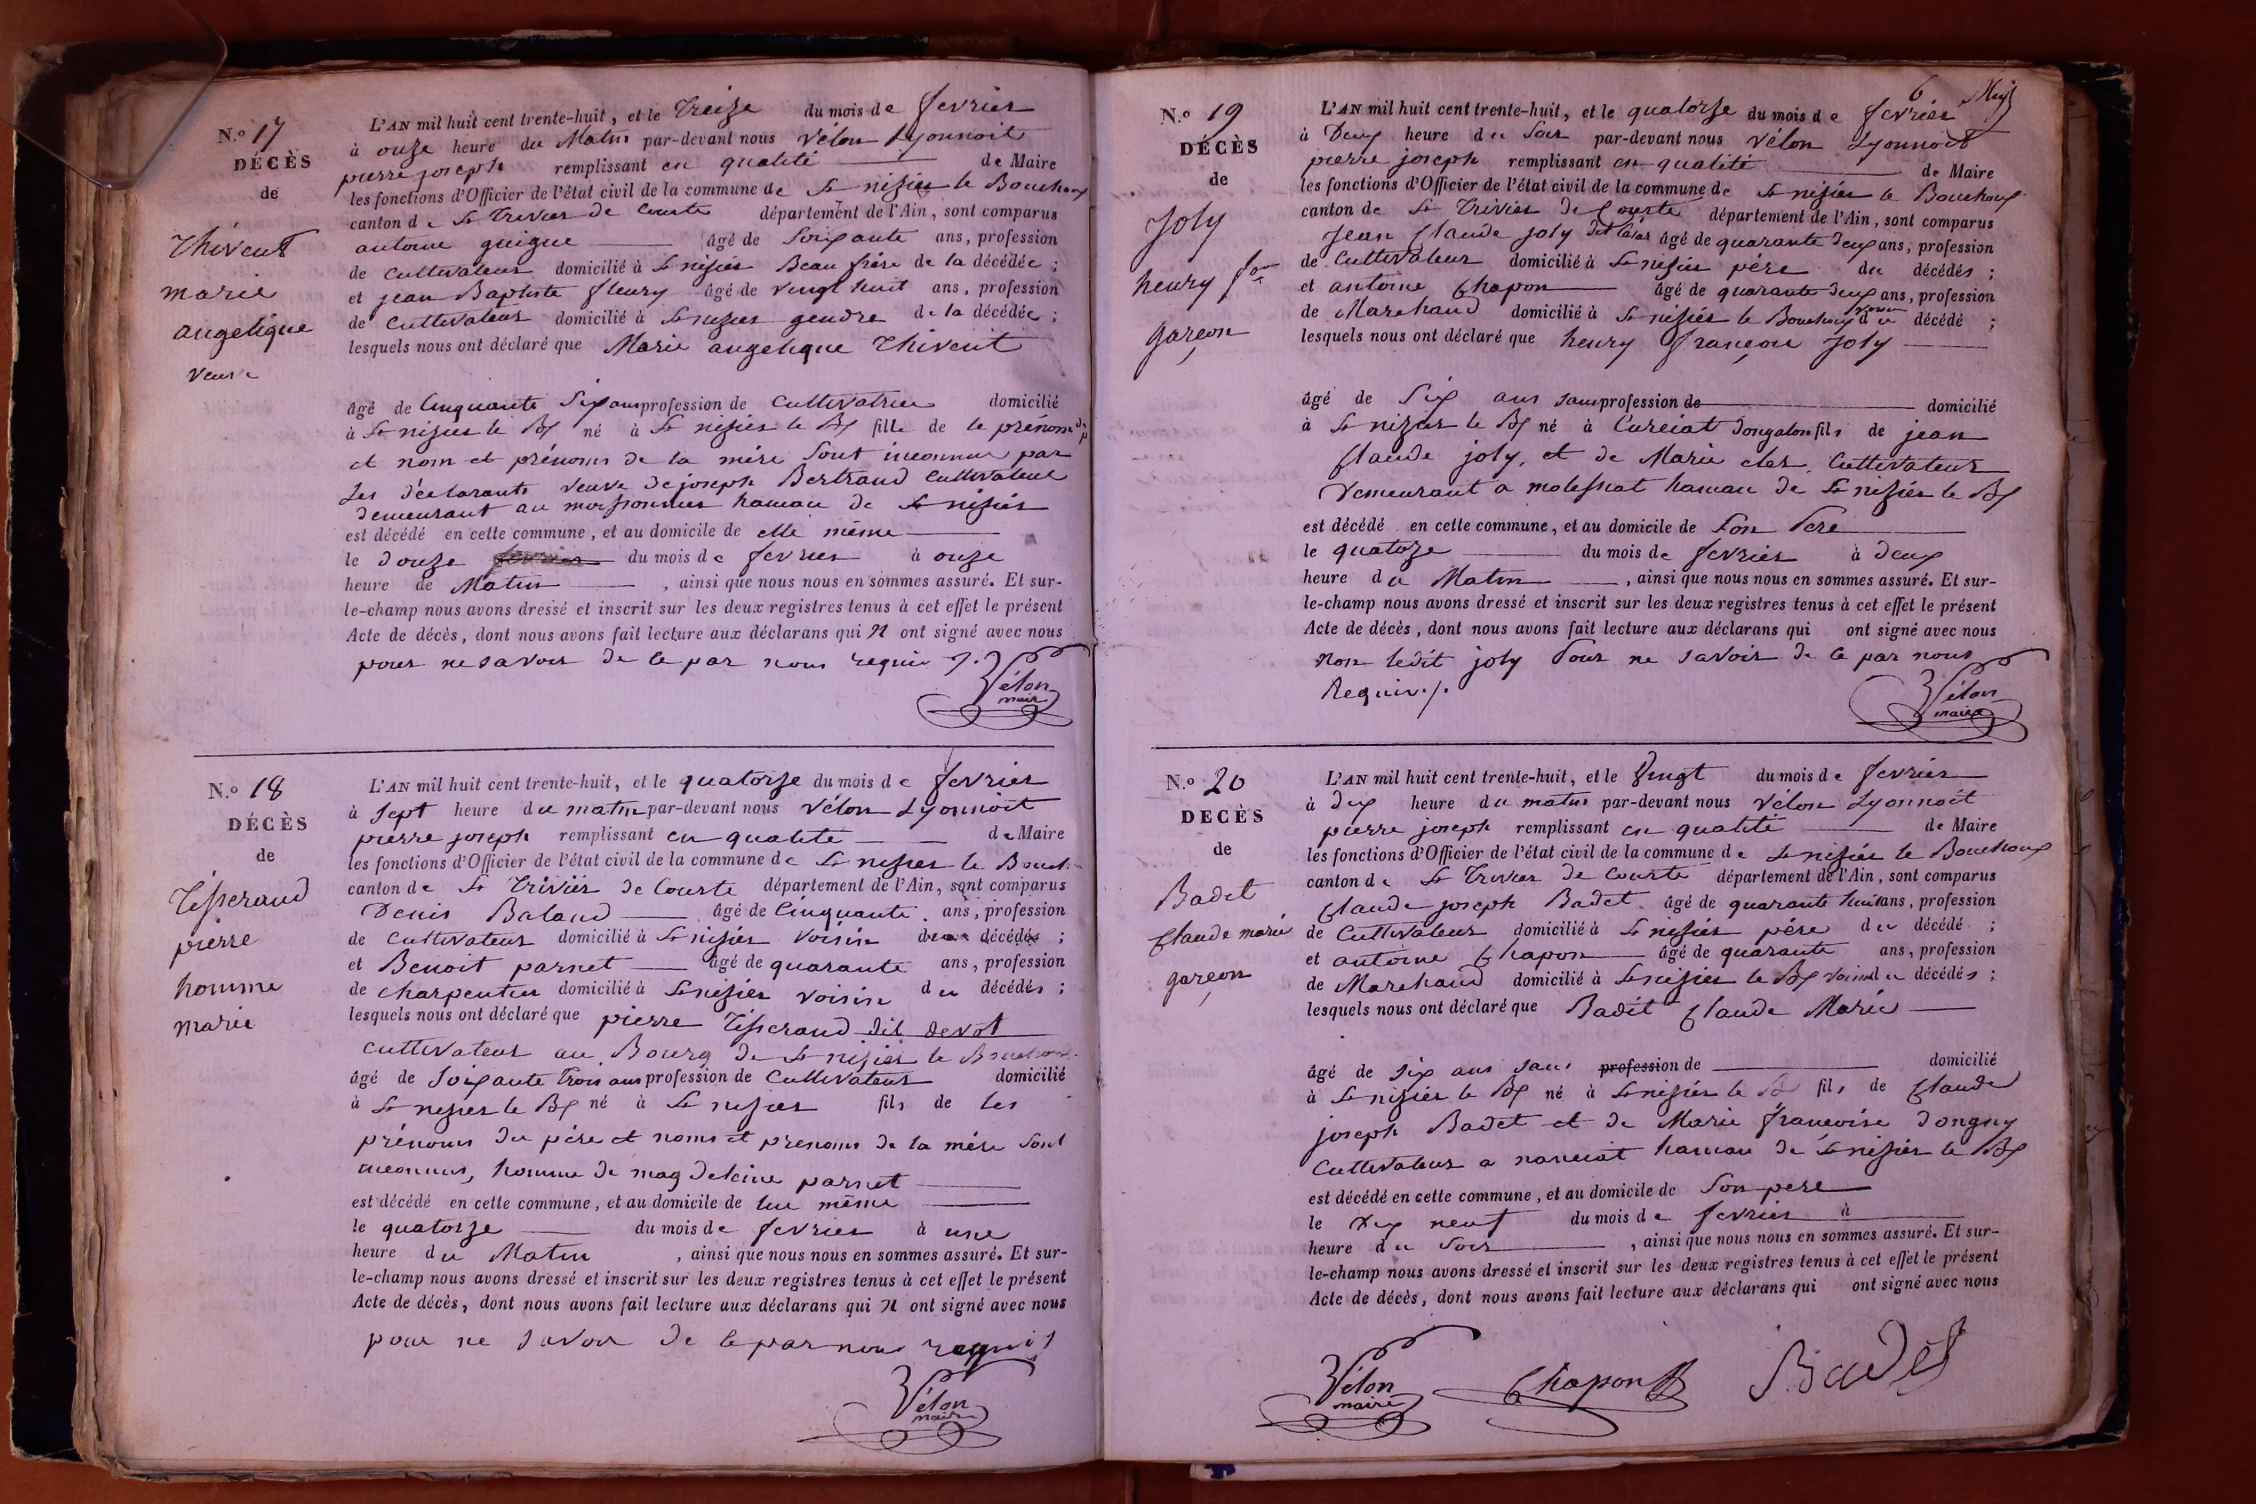 N.o 17
DÉCÈS
de
Thivent
marie
angelique
veuve
L'AN mil huit cent trente-huit, et le treize du mois de fevrier
à onze heure du Matin par-devant nous Vélon Lyonnoit
pierre joseph remplissant en qualité de Maire
les fonctions d'Officier de l'état civil de la commune de St nizier le Bouchoux
canton de St Trivier de Courte département de l'Ain, sont comparus
antoine guigue âgé de soixante ans, profession
de Cultivateur domicilié à St nizier Beau frère de la décédée ;
et jean Baptiste fleury âgé de vingt huit ans, profession
de Cultivateur domicilié à St nizier gendre de la décédée ;
lesquels nous ont déclaré que Marie angelique Thivent
âgé de Cinquante Six ans profession de Cultivatrice domicilié
à St nizier le Bx né à St nizier le Bx fille de le prénom du p
et nom et prénoms de la mére sont inconnus par
Les déclarants veuve de joseph Bertrand Cultivateur
demeurant au hameau de St nizier
est décédé en cette commune, et au domicile de elle même
le douze fevrier du mois de fevrier à onze
heure de Matin , ainsi que nous nous en sommes assuré. Et sur-
le-champ nous avons dressé et inscrit sur les deux registres tenus à cet effet le présent
Acte de décès, dont nous avons fait lecture aux déclarans qui n ont signé avec nous
pour ne savoir de ce par nous requis ./.
Vélon
maire
N.o 18
DÉCÈS
de
Tisserand
pierre
homme
marie
L'AN mil huit cent trente-huit, et le quatorze du mois de fevrier
à sept heure du matin par-devant nous Vélon Lyonnoit
pierre joseph remplissant en qualité de Maire
les fonctions d'Officier de l'état civil de la commune de St nizier le Bouch
canton de St Trivier de Courte département de l'Ain, sont comparus
Denis Baland âgé de Cinquante ans, profession
de Cultivateur domicilié à St nizier voisin décédés ;
et Benoit parnet âgé de quarante ans, profession
de charpentier domicilié à St nizier voisin du décédés ;
lesquels nous ont déclaré que pierre Tisserand dit devot
Cultivateur au Bourg de St nizier le Bouchoux
âgé de soixante trois ans profession de Cultivateur domicilié
à St nizier le Bx né à St nizier fils de les
prénoms du pére et noms et prenoms de la mére sont
inconnus, homme de magdeleine parnet
est décédé en cette commune, et au domicile de lui même
le quatorze du mois de fevrier à une
heure du Matin , ainsi que nous nous en sommes assuré. Et sur-
le-champ nous avons dressé et inscrit sur les deux registres tenus à cet effet le présent
Acte de décès, dont nous avons fait lecture aux déclarans qui n ont signé avec nous
pour ne savoir de ce par nous requis
Vélon
maire
6
N.o 19
DÉCÈS
de
Joly
henry fois
garçon
L'AN mil huit cent trente-huit, et le quatorze du mois de fevrier
à Deux heure du soir par-devant nous Vélon Lyonnoit
pierre joseph remplissant en qualité de Maire
les fonctions d'Officier de l'état civil de la commune de St nizier le Bouchoux
canton de St Trivier de Courte département de l'Ain, sont comparus
Jean Claude joly dit âgé de quarante deux ans, profession
de Cultivateur domicilié à St nizier pére du décédés ;
et antoine Chapon âgé de quarante deux ans, profession
de Marchand domicilié à St nizier le Bouchoux voisin du décédé ;
lesquels nous ont déclaré que henry françois Joly
âgé de six ans sans profession de domicilié
à St nizier le Bx né à Curciat dongalon fils de jean
Claude joly, et de Marie cler, Cultivateur
Demeurant a hameau de St nizier le Bx
est décédé en cette commune, et au domicile de son Pere
le quatoze du mois de fevrier à deux
heure du Matin , ainsi que nous nous en sommes assuré. Et sur-
le-champ nous avons dressé et inscrit sur les deux registres tenus à cet effet le présent
Acte de décès, dont nous avons fait lecture aux déclarans qui ont signé avec nous
non ledit joly Pour ne savoir de ce par nous
Requis ./.
Vélon
maire
N.o 20
DECÈS
de
Badet
Claude marie
garçon
L'AN mil huit cent trente-huit, et le vingt du mois de fevrier
à dix heure du matin par-devant nous Vélon Lyonnoit
pierre joseph remplissant en qualité de Maire
les fonctions d'Officier de l'état civil de la commune de St nizier le Bouchoux
canton de St Trivier de Courte département de l'Ain, sont comparus
Claude joseph Badet âgé de quarante huit ans, profession
de Cultivateur domicilié à St nizier pére du décédé ;
et antoine Chapon âgé de quarante ans, profession
de Marchand domicilié à St nizier le Bx voisin du décédés ;
lesquels nous ont déclaré que Badet Claude Marie
âgé de six ans sans profession de domicilié
à St nizier le Bx né à St nizier le B fils de Claude
joseph Badet et de Marie françoise dongny
Cultivateur a hameau de St nizier le Bx
est décédé en cette commune, et au domicile de son pere
le Dix neuf du mois de fevrier à
heure du soir , ainsi que nous nous en sommes assuré. Et sur-
le-champ nous avons dressé et inscrit sur les deux registres tenus à cet effet le présent
Acte de décès, dont nous avons fait lecture aux déclarans qui ont signé avec nous
Vélon
maire
Chapon
Badet